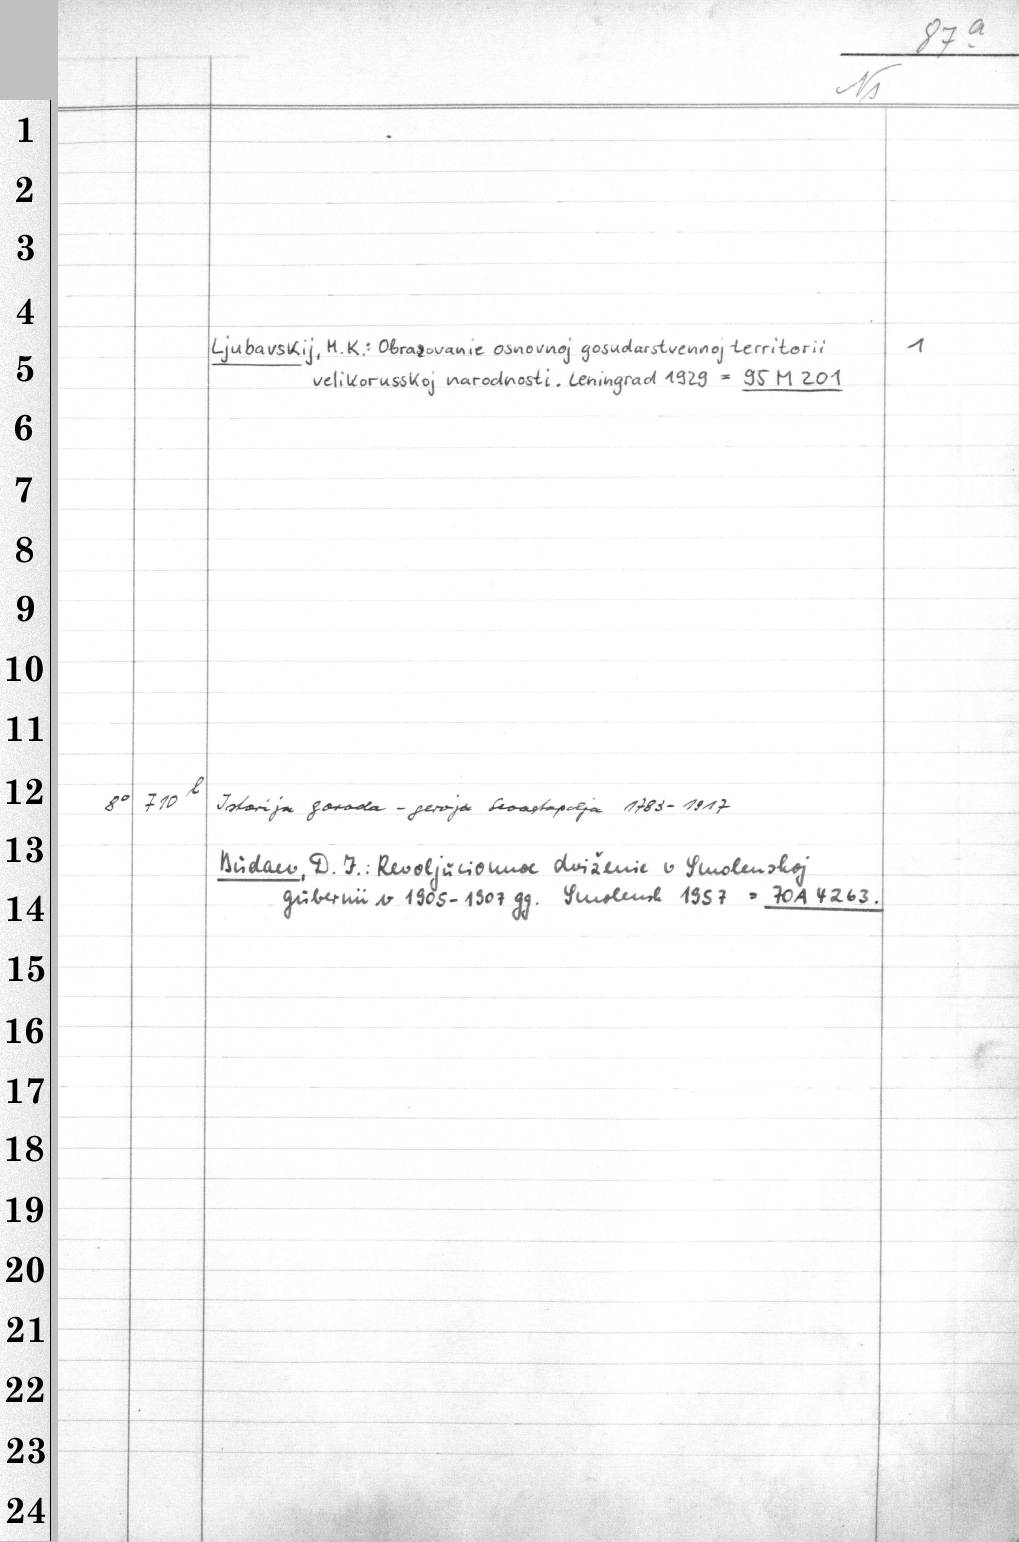 87a
Ns
1
2
3
4
Ljubavskij, M.K.: Obrazovanie osnovnoj gosudarstvennoj territorii 1
5
velikorusskoj narodnosti. Leningrad 1929 = 95 M 201
6
7
8
9
10
11
12
8° 710 l Istorija goroda - geroja Sevastopolja 1783-1917
13
Budaev, D. I.: Revoljucionnoe dviženie v Smolenskoj
14
gubernii v 1905-1907 gg. Smolensk 1957 = 70A 4263.
15
16
17
18
19
20
21
22
23
24